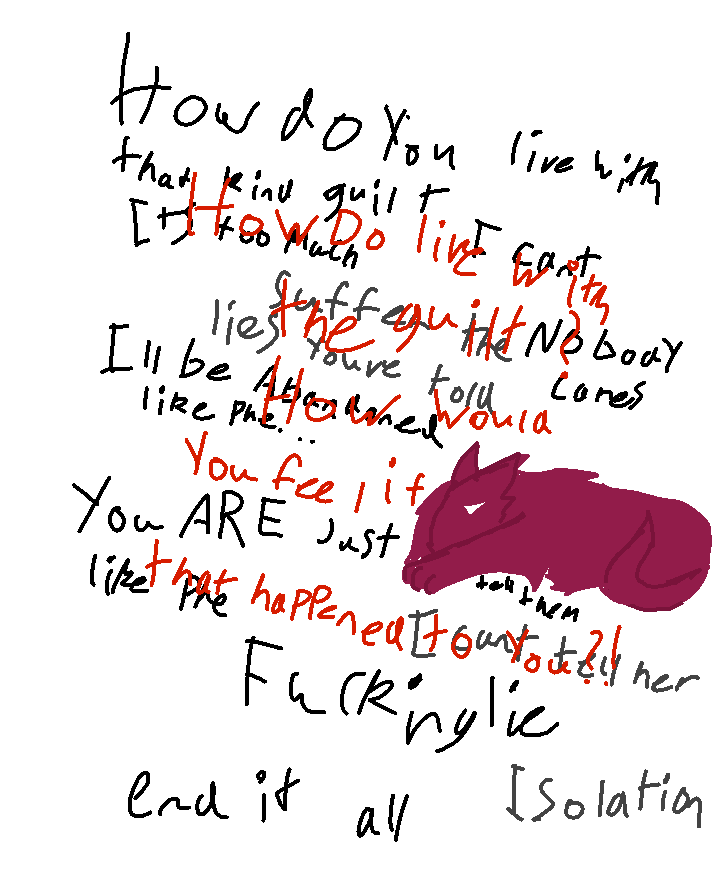 How do You live with
that kind guilt
[t] too Much I cant
How Do live with
suffer the
the guilt?
lies Youre told
Nobody
cares
I'll be Abandoned
like Phe...
How would
You feel if
You ARE Just
like Phe
that happened to You?!
tell them
I cant tell her
Fucking lie
end it all
Isolation